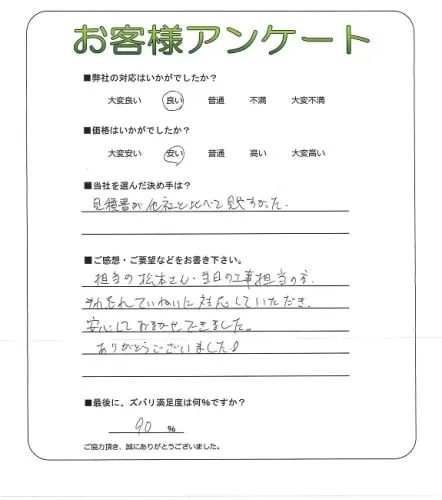 お客様アンケート
■弊社の対応はいかがでしたか？
大変良い 良い 普通 不満 大変不満
■価格はいかがでしたか？
大変安い 安い 普通 高い 大変高い
■当社を選んだ決め手は？
見積書が他社と比べて見やすかった。
■ご感想・ご要望などをお書き下さい。
担当の松本さん・当日の工事担当の方、
それぞれていねいに対応していただき、
安心しておまかせできました。
ありがとうございました!
■最後に、ズバリ満足度は何%ですか？
90 %
ご協力頂き、誠にありがとうございました。